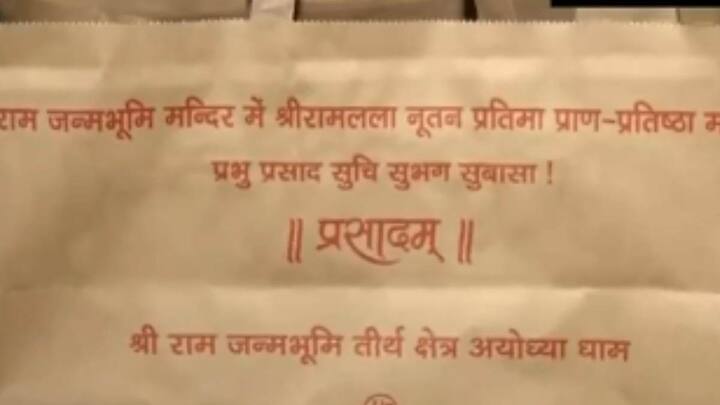 राम जन्मभूमि मन्दिर में श्रीरामलला नूतन प्रतिमा प्राण-प्रतिष्ठा म
प्रभु प्रसाद सुचि सुभग सुबासा !
|| प्रसादम् ||
श्री राम जन्मभूमि तीर्थ क्षेत्र अयोध्या धाम